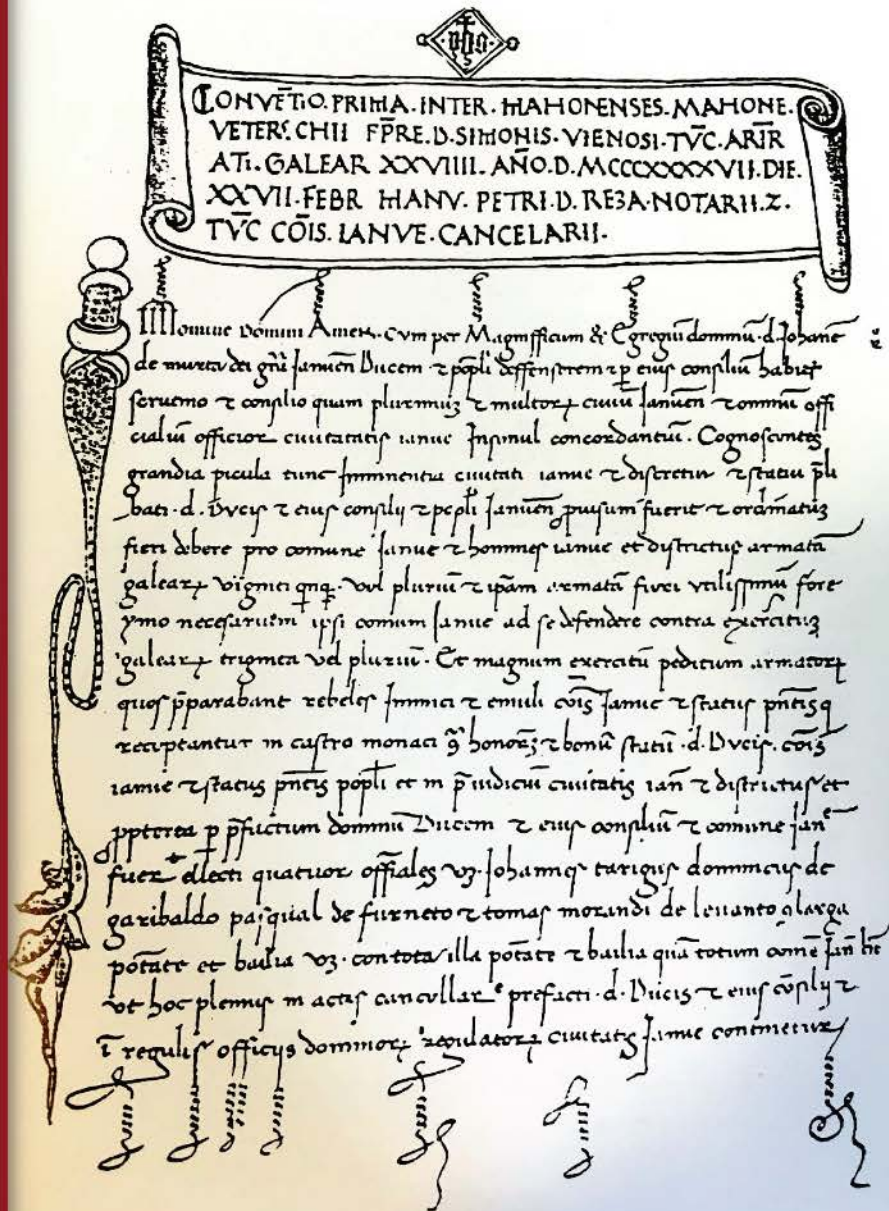 yhs
CONVĒTIO. PRIMA. INTER. MAHONENSES. MAHONE.
VETERꝭ. CHII FP̄RE. D. SIMONIS. VIENOSI. TV̄C. ARĪR
ATI. GALEAR XXVIIII. AÑO. D. MCCCXXXXVII. DIE.
XXVII. FEBR MANV. PETRI. D. REZA. NOTARII. Z.
TV̄C CŌIS. IANVE. CANCELARII.
Domini Amen. Cum per Magnifficum & Egregiū dommū. d. Johanē
de murta dei gr̄ā Januēn Ducem ⁊ pōpli deffensorem ⁊ ꝑ eius consiliū habiet
⁊ consilio quam plurimuȝ ⁊ multoꝝ ciuiū Januēn ⁊ omniū offi
cialiū officior ciuitatatis ianue Insimul concordantiū. Cognoscentes
grandia picula tunc Imminentia ciuitati ianue ⁊ ⁊ statui p̄li
bati. d. Ducis ⁊ eius consilij ⁊ popl̄i Januēn ꝓuisum fuerit ⁊ ordinatuȝ
fieri debere pro comune Janue ⁊ homines ianue et districtus armatā
galeaꝝ viginti qnqꝫ. vel pluriū ⁊ ip̄am armatā fieri vtilissimū fore
ymo necesarium ipsi comuni Janue ad se defendere contra exercituȝ
galeaꝝ triginta vel pluriū. Et magnum exercitū peditum armatoꝝ
quos p̄parabant rebeles Inimici ⁊ emuli cōis Janue ⁊ status pn̄tis q
receptantur in castro monaci ꝯ̄ honorȝ ⁊ bonū statū. d. Ducis. cōis
ianue ⁊ status pn̄tis popl̄i et in p̄iudiciū ciuitatis iāñ ⁊ districtus et
ꝓpterea ꝑ p̄factum dominū Ducem ⁊ eius consiliū ⁊ comune Jan̄
fuer̄ ellecti quatuor offi̅ales vȝ. Johannes tarigus dominicus de
garibaldo pasqual de furneto ⁊ tomas morandi de leuanto ꝯ larga
potāte et bailia vȝ. con tota illa potāte ⁊ bailia quā totum comē Jan̄ het̄
vt hoc plenius in actis prefacti. d. Ducis ⁊ eius cōsilij ⁊
ī regulis officijs dominoꝝ regulatoꝝ ciuitatis Janue continetur